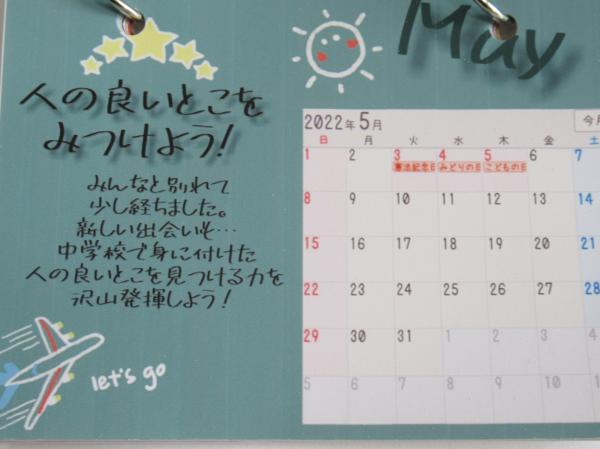 人の良いとこを
みつけよう!
みんなと別れて
少し経ちました。
新しい出会いも…
中学校で身に付けた
人の良いとこを見つける力を
沢山発揮しよう!
let's go
May
2022年5月
今月
日 月 火 水 木 金 土
1 2 3 4 5 6 7
憲法記念日 みどりの日 こどもの日
8 9 10 11 12 13 14
15 16 17 18 19 20 21
22 23 24 25 26 27 28
29 30 31 1 2 3 4
5 6 7 8 9 10